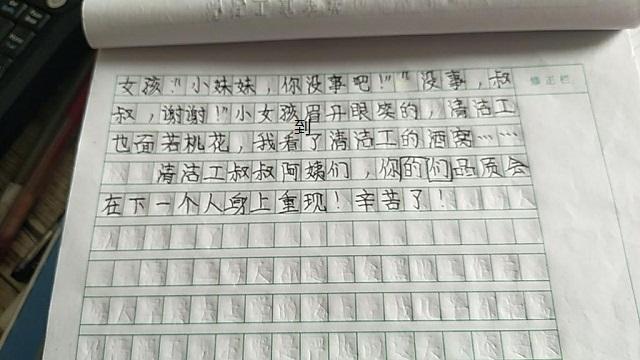 修正栏
女孩："小妹妹，你没事吧！""没事，叔
叔，谢谢！"小女孩眉开眼笑的，清洁工
到
也面若桃花，我看了清洁工的酒窝……
清洁工叔叔阿姨们，你的们品质会
在下一个人身上重现！辛苦了！